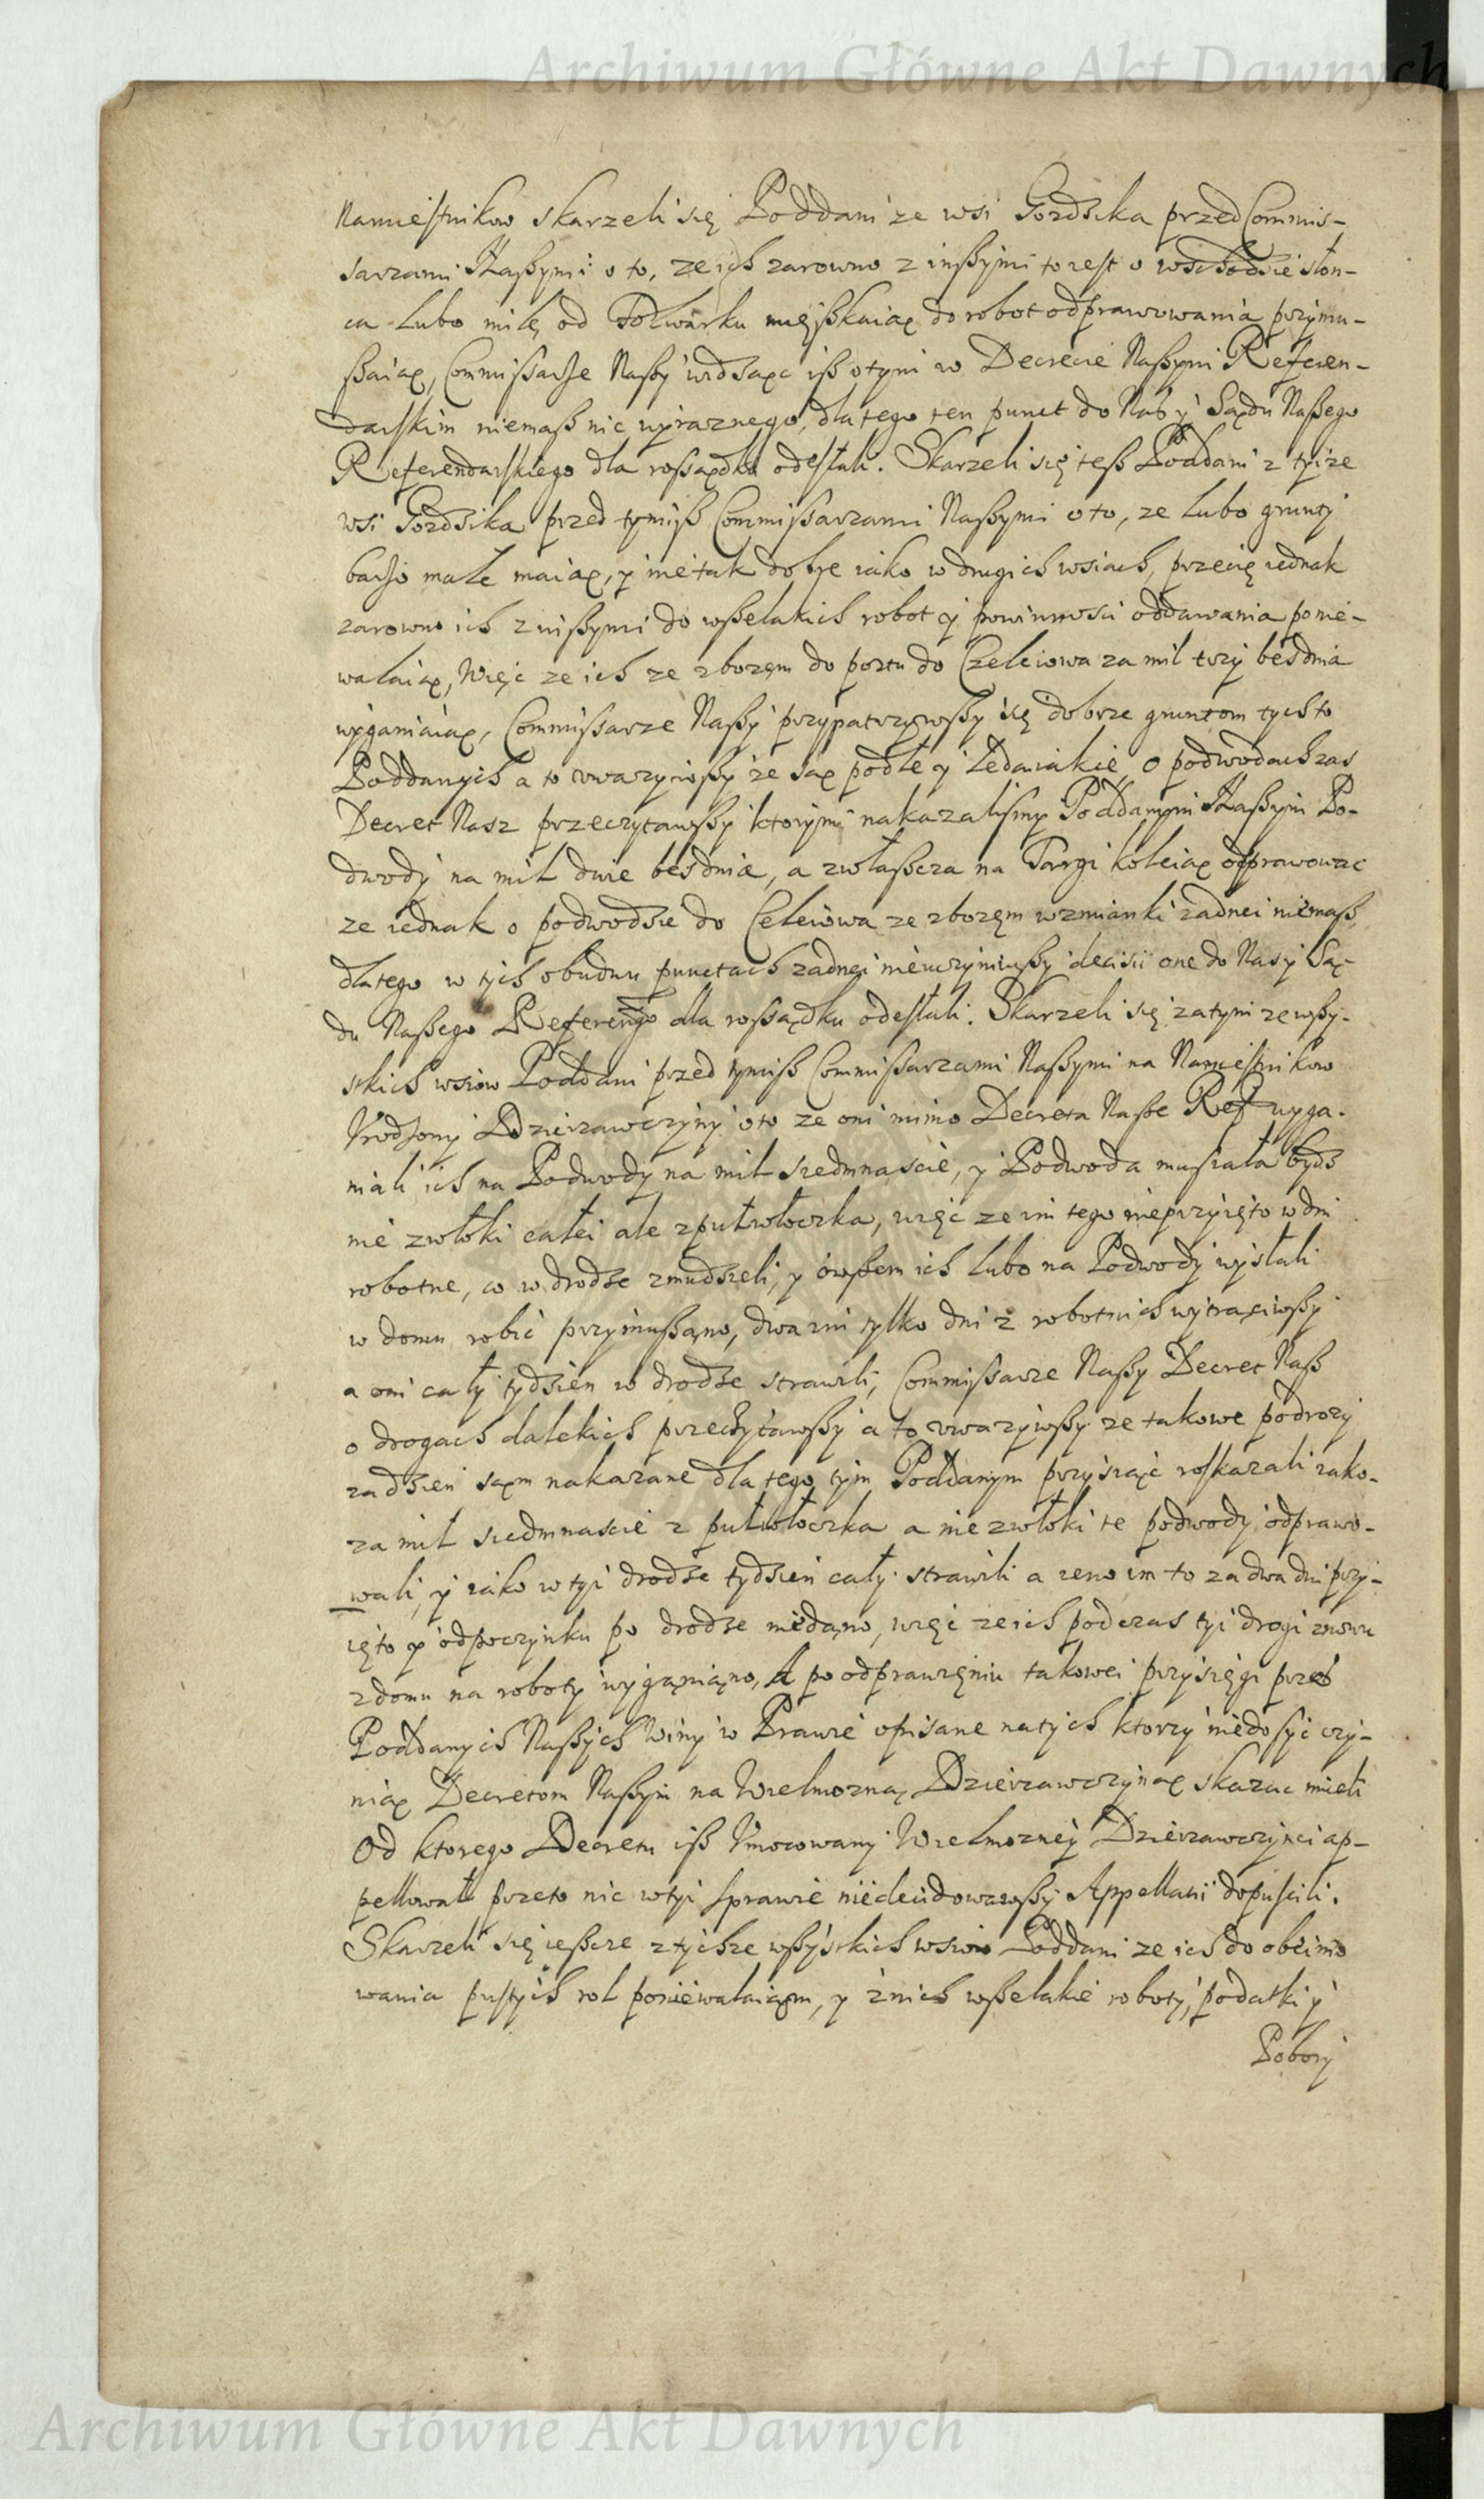 Archiwum Główne Akt Dawnych
Namiestnikow skarzeli się Poddani ze wsi Gozdzika przed Commis-
sarzami Naszymi o to, ze ich zarowno z inszymi to iest o wschodzie słon-
ca lubo milę od Folwarku mięszkaiąc do robot odprawowania przymu-
szaią, Commissarze Naszy widząc isz o tym w Decrecie Naszym Referen-
darskim niemasz nic wyraznego, dla tego ten punct do Nas y Sądu Naszego
Referendarskiego dla rossądku odesłali. Skarzeli się tesz Poddani z tyize
wsi Gozdzika przed tymisz Commissarzami Naszymi o to, ze lubo grunty
barzo małe maią, y nie tak dobre iako w drugich wsiach, przecię iednak
zarowno ich z inszymi do wszelakich robot y powinnosci oddawania ponie-
walaią, Więc ze ich ze zbozem do portu do Czeleiowa za mil trzy bes dnia
wyganiaią, Commissarze Naszy przypatrzywszy się dobrze gruntom tychto
Poddanych a to uwazywszy ze są podłe y ledaiakie, o podwodach zas
Decret Nasz przeczytawszy ktorym nakazalismy Poddanym Naszym Po-
dwody na mil dwie bes dnia, a zwłaszcza na Targi koleią odprawowac
ze iednak o podwodzie do Celeiowa ze zbozem wzmianki zadnei niemasz,
dlatego w tych obudwu punctach zadnei nieuczyniwszy decisii one do Nas y Są-
du Naszego Referengo dla rossądku odesłali. Skarzeli się zatym ze wszy-
stkich wsiow Poddani przed tymisz Commissarzami Naszymi na Namiestnikow
Urodzony Dzierzawczyny oto ze oni mimo Decreta Nasze Ref wyga-
niali ich na Podwody na mil siedmnascie, y Podwoda musiała bydz
nie z włoki całei ale z pułwłoczka, więc ze im tego nieprzyięto w dni
robotne, co w drodze zmudzieli, y owszem ich lubo na Podwody wysłali
w domu robić przymuszano, dwa im tylko dni z robotnich wytrąciwszy
a oni cały tydzien w drodze strawili, Commissarze Naszy Decret Nasz
o drogach dalekich przeczytawszy a to uwazywszy ze takowe podrozy
za dzien sąm nakazane dla tego tym Poddanym przysiąć roskazali iako
za mil siedmnascie z pułwłoczka a nie z włoki te podwody odprawo-
wali, y iako w tyi drodze tydzien cały strawili a ieno im to za dwa dni przy-
ięto y odpoczynku po drodze niedano, więc ze ich podczas tyi drogi znowu
z domu na roboty wyganiano, A po odprawieniu takowei przysięgi przes
Poddanych Naszych Winy w Prawie opisane na tych ktorzy niedosyć czy-
nią Decretom Naszym na Wielmozną Dzierzawczyną skazac mieli
Od ktorego Decretu isz Umocowany Wielmozney Dzierzawczynei ap-
pellował przeto nic w tyi sprawie niedecidowawszy Appellatii dopuscili.
Skarzeli się ieszcze z tychze wszystkich wsiow Poddani ze ich do obeimo
wania pustych rol poniewalaiąm, y z nich wszelakie roboty, podatki y
Pobory
Archiwum Główne Akt Dawnych